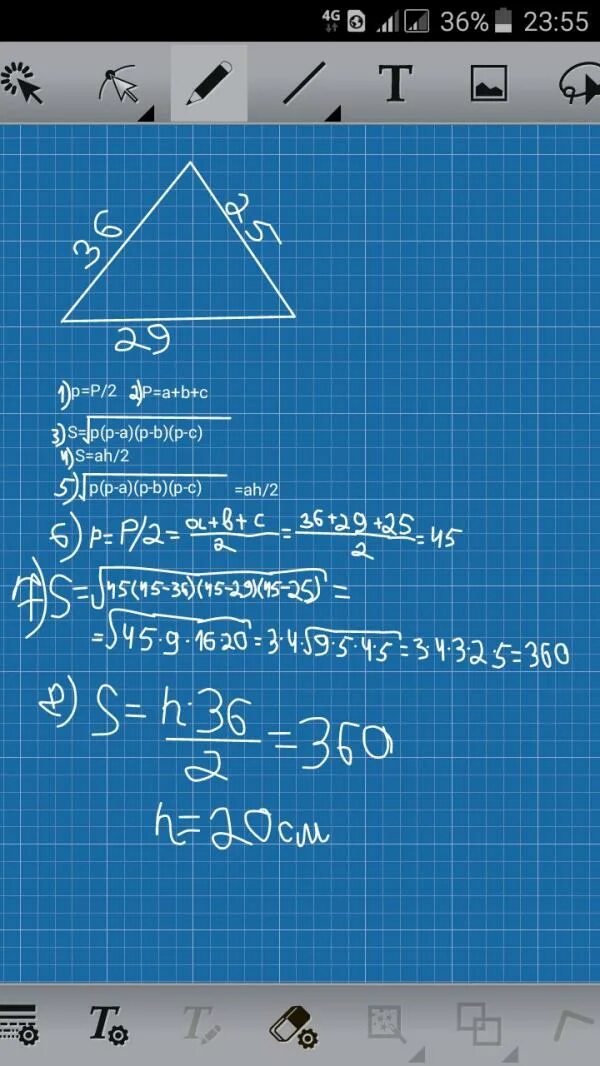 4G 36% 23:55
T
36
25
29
1) p=P/2 2) P=a+b+c
3) S=√p(p-a)(p-b)(p-c)
4) S=ah/2
5) √p(p-a)(p-b)(p-c) =ah/2
6) p=P/2=a+b+c/2=36+29+25/2=45
7) S=√45(45-36)(45-29)(45-25)=
=√45·9·16·20=3·4√9·5·4·5=3·4·3·2·5=360
8) S=h·36/2=360
h=20см
T T